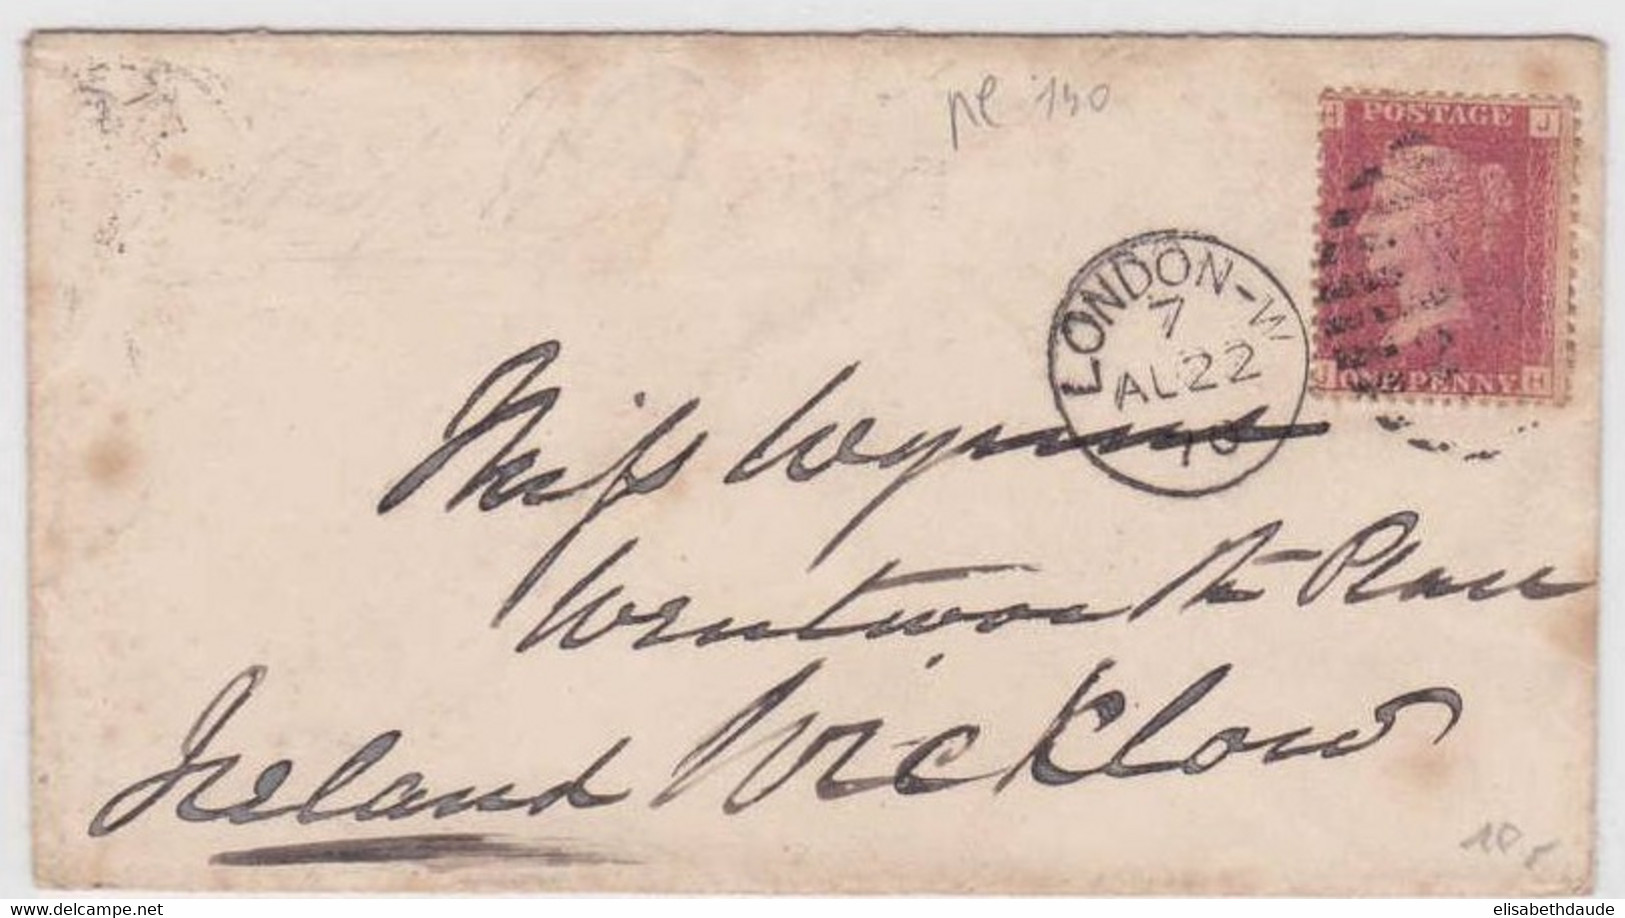 pl 140
J POSTAGE J
H ONE PENNY H
LONDON-W
7
AL 22
70
Miss Wynne
Wentworth Place
Wicklow
Ireland
10 €
www.delcampe.net
elisabethdaude